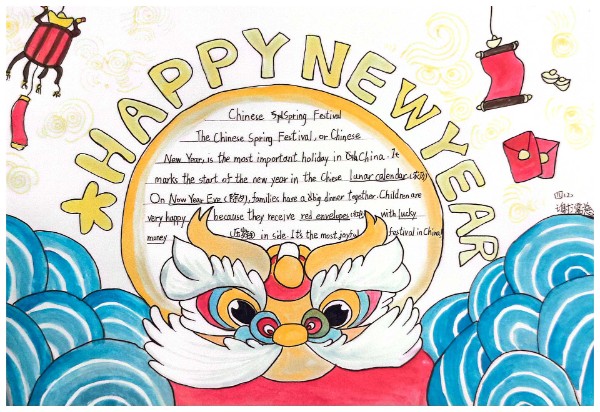 HAPPY NEW YEAR
Chinese Spring Festival
The Chinese Spring Festival, or Chinese
New Year, is the most important holiday in China. It
marks the start of the new year in the Chinese lunar calendar
On New Year Eve (除夕), families have a big dinner together. Children are
very happy because they receive red envelopes with lucky
money in side. It's the most joyful festival in China!